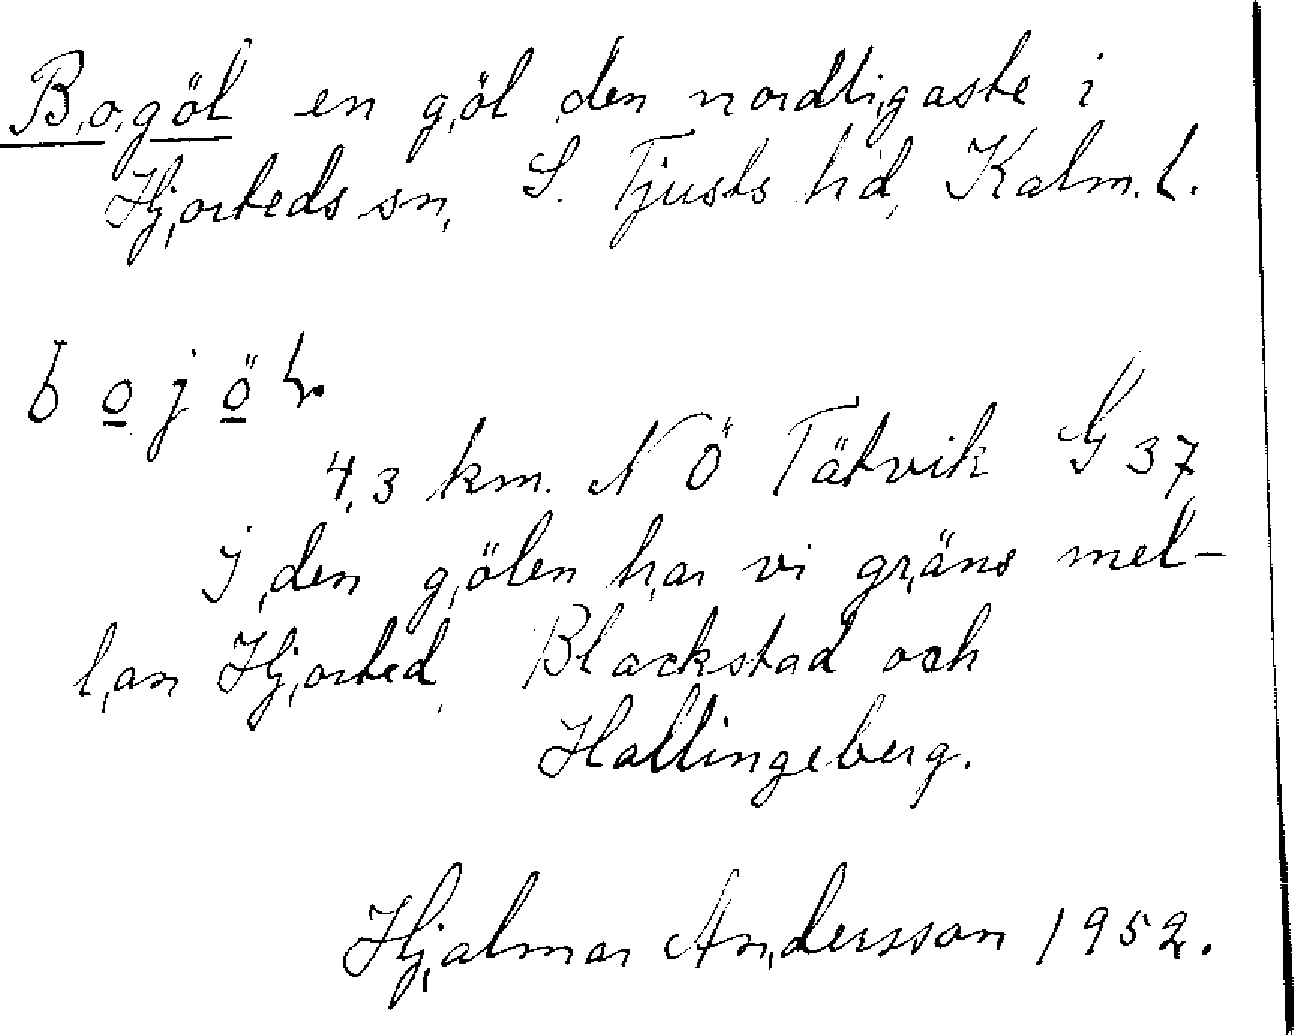 Bogöl en göl den nordligaste i
Hjorteds sn, S. Tjusts hd, Kalm. l.
b o j ö l.
4,3 km. N Ö Tätvik G 37
I den gölen har vi gräns mel-
lan Hjorted, Blackstad och
Hallingeberg.
Hjalmar Andersson 1952.